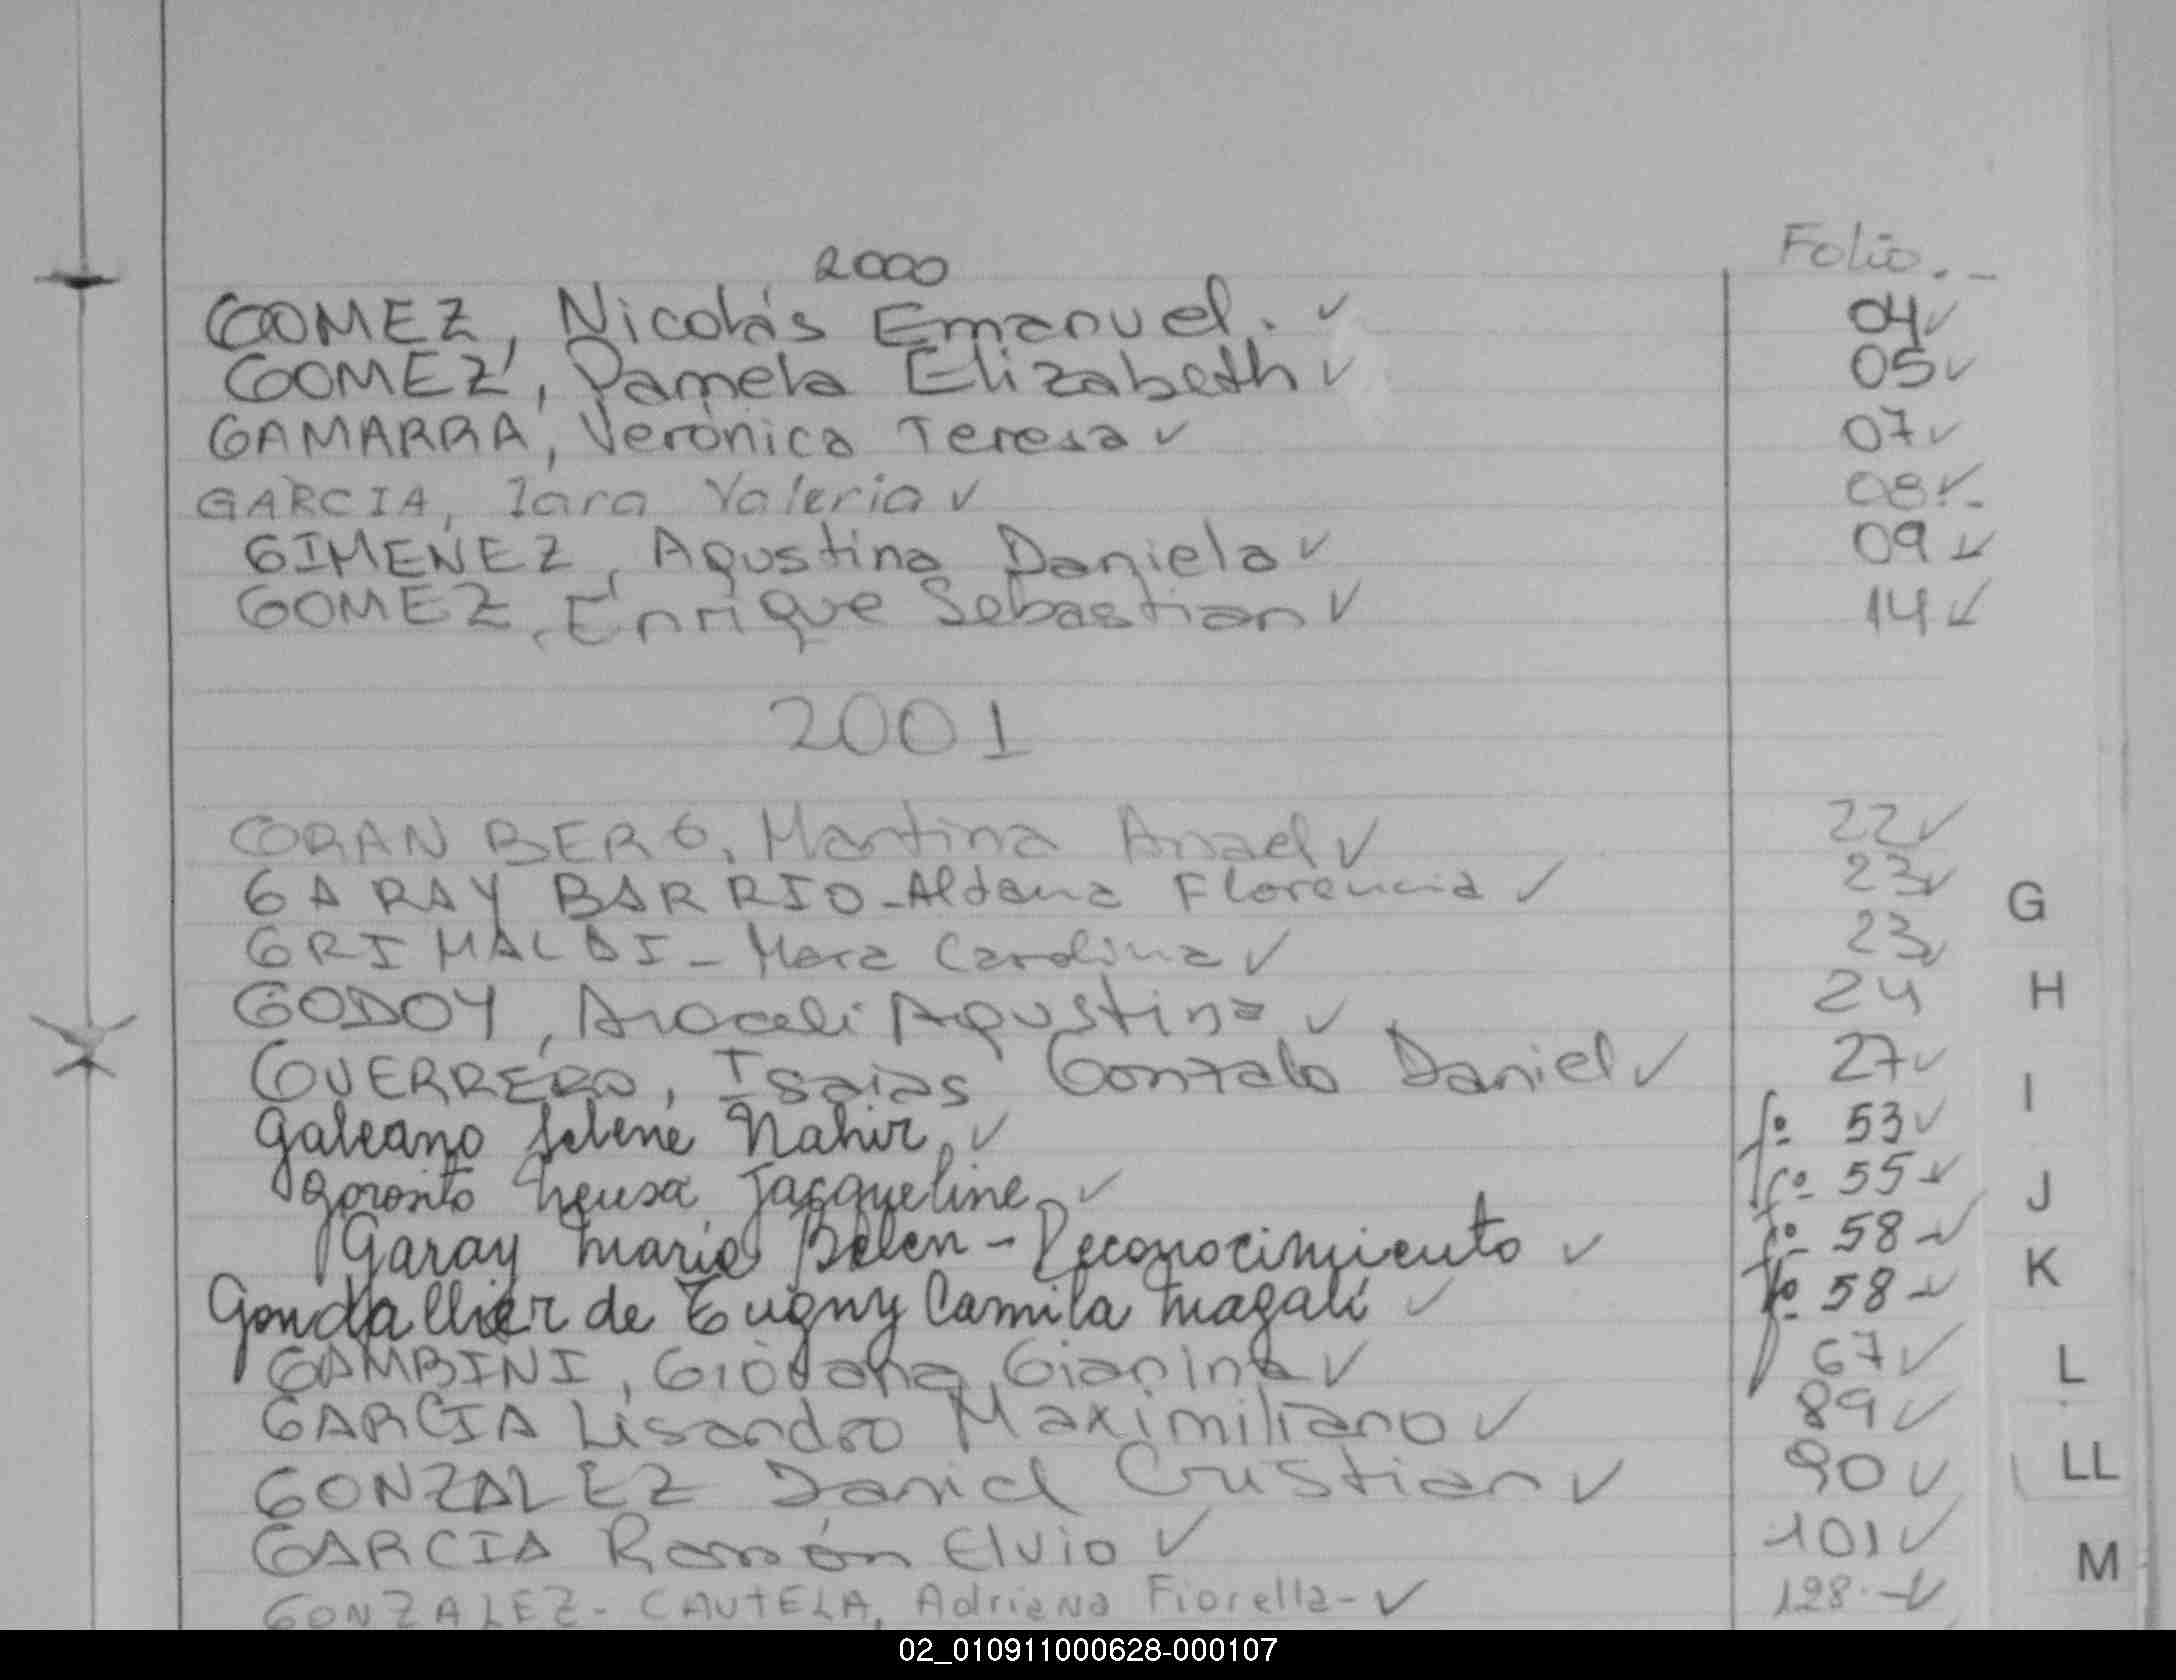 2000 Folio._
GOMEZ, Nicolás Emanuel. ✓ 04✓
GOMEZ, Pamela Elizabeth ✓ 05✓
GAMARRA, Verónica Teresa ✓ 07✓
GARCIA, Iara Valeria ✓ 08✓-
GIMENEZ, Agustina Daniela ✓ 09 ✓
GOMEZ, Enrique Sebastian ✓ 14 ✓
2001
GRAN BERG, Martina Anael ✓ 22✓
GARAY BARRIO-Aldana Florencia ✓ 23✓
G
GRIMALDI - Mara Carolina ✓ 23✓
GODOY, Araceli Agustina ✓ 24
H
GUERRERO, Isaias Gonzalo Daniel ✓ 27✓
I
Galeano Selene Nahir ✓ fº 53✓
Gorosito Neusa Jacqueline ✓ fº 55✓
J
Garay Maria Belen - Reconocimiento ✓ fº 58-✓
K
Gondallier de Tugny Camila Magali ✓ fº 58-✓
GAMBINI, Giovana Gianina ✓ 67✓
L
GARCIA Lisandro Maximiliano ✓ 89✓
GONZALEZ Daniel Cristian ✓ 90✓
LL
GARCIA Ramón Elvio ✓ 101✓
M
GONZALEZ - CAUTELA, Adriana Fiorella- ✓ 128.-✓
02_010911000628-000107